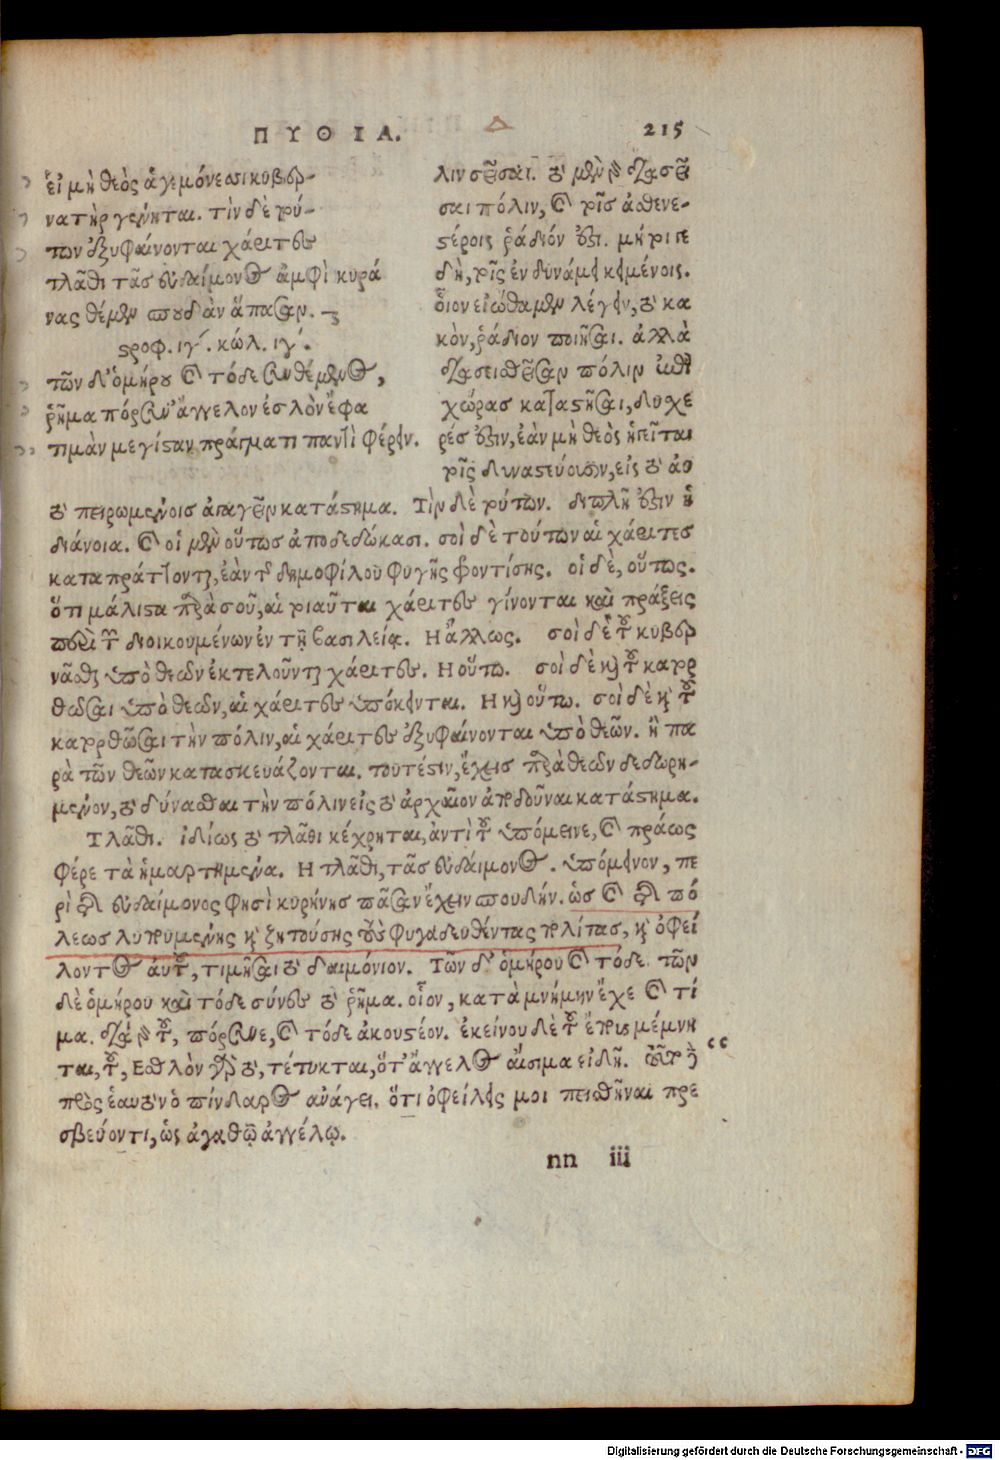 ΠΥΘΙΑ.
215
εἰ μὴ θεὸς ἁγεμόνεσσι κυβερ-
νατὴρ γένηται. τὶν δὲ τού-
των ἐξυφαίνονται χάριτες
τλᾶθι τᾶς εὐδαίμονος ἀμφὶ κυρά
νας θέμεν σπουδὰν ἅπασαν.
στροφ. ιγ΄. κώλ. ιγ΄.
τῶν δ' ὁμήρου καὶ τόδε συνθέμενος,
ῥῆμα πόρσυν' ἄγγελον ἐσλὸν ἔφα
τιμὰν μεγίσαν πράγματι παντὶ φέρειν.
λιν σεῖσαι. τὸ μὲν γὰρ διασεῖ
σαι πόλιν, καὶ τοῖς ἀσθενε-
στέροις ῥάδιόν ἐστι. μήτοι γε
δὴ, τοῖς ἐν δυνάμει κειμένοις.
οἷον εἰώθαμεν λέγειν, τὸ κα
κὸν, ῥάδιον ποιῆσαι. ἀλλὰ
διασεισθεῖσαν πόλιν ἐπὶ
χώρας καταστῆσαι, δυσχε
ρές ἐστιν, ἐὰν μὴ θεὸς ἡγεῖται
τοῖς δυναστεύουσιν, εἰς τὸ ἀσ
τὸ πειρωμένοις ἀπαγαγεῖν κατάστημα. Τὶν δὲ τούτων. διπλῆ ἐστιν ἡ
διάνοια. καὶ οἱ μὲν οὕτως ἀποδεδώκασι. σοὶ δὲ τούτων αἱ χάριτες
καταπράττονται, ἐὰν τῆς δημοφίλου φυγῆς φροντίσῃς. οἱ δὲ, οὕτως.
ὅτι μάλιστα παρὰ σοῦ, αἱ τοιαῦται χάριτες γίνονται καὶ πράξεις
περὶ τῶν διοικουμένων ἐν τῇ βασιλείᾳ. Η ἄλλως. σοὶ δὲ τοῦ κυβερ
νᾶσθαι ὑπὸ θεῶν ἐκτελοῦνται χάριτες. Η οὕτω. σοὶ δὲ καὶ τοῦ κατορ
θῶσαι ὑπὸ θεῶν, αἱ χάριτες ὑπόκεινται. Η καὶ οὕτω. σοὶ δὲ καὶ τοῦ
κατορθῶσαι τὴν πόλιν, αἱ χάριτες ἐξυφαίνονται ὑπὸ θεῶν. ἢ πα
ρὰ τῶν θεῶν κατασκευάζονται. τουτέστιν, ἔχεις παρὰ θεῶν δεδωρη-
μένον, τὸ δύνασθαι τὴν πόλιν εἰς τὸ ἀρχαῖον ἀποδοῦναι κατάστημα.
Τλᾶθι. ἰδίως τὸ τλᾶθι κέχρηται, ἀντὶ τοῦ ὑπόμεινε, καὶ πράως
φέρε τὰ ἡμαρτημένα. Η τλᾶθι, τᾶς εὐδαίμονος. ὑπόμεινον, πε
ρὶ τῆς εὐδαίμονος φησὶ κυρήνης πᾶσαν ἔχειν σπουδήν. ὡς καὶ τῆς πό
λεως λυπουμένης καὶ ζητούσης τοὺς φυγαδευθέντας πολίτας, καὶ ὀφεί
λοντος αὐτοῦ, τιμῆσαι τὸ δαιμόνιον. Τῶν δ' ὁμήρου καὶ τόδε. τῶν
δὲ ὁμήρου καὶ τόδε σύνες τὸ ῥῆμα. οἷον, κατὰ μνήμην ἔχε καὶ τί
μα. διὰ γὰρ τοῦ, πόρσυνε, καὶ τόδε ἀκουστέον. ἐκείνου δὲ τοῦ ἔπους μέμνη
ται, τοῦ, Εσθλὸν γὰρ τὸ, τέτυκται, ὅτ' ἄγγελος αἴσιμα εἰδῇ.
πρὸς ἑαυτὸν ὁ πίνδαρος ἀνάγει. ὅτι ὀφείλεις μοι πεισθῆναι πρε
σβεύοντι, ὡς ἀγαθῷ ἀγγέλῳ.
nn iii
Digitalisierung gefördert durch die Deutsche Forschungsgemeinschaft - DFG